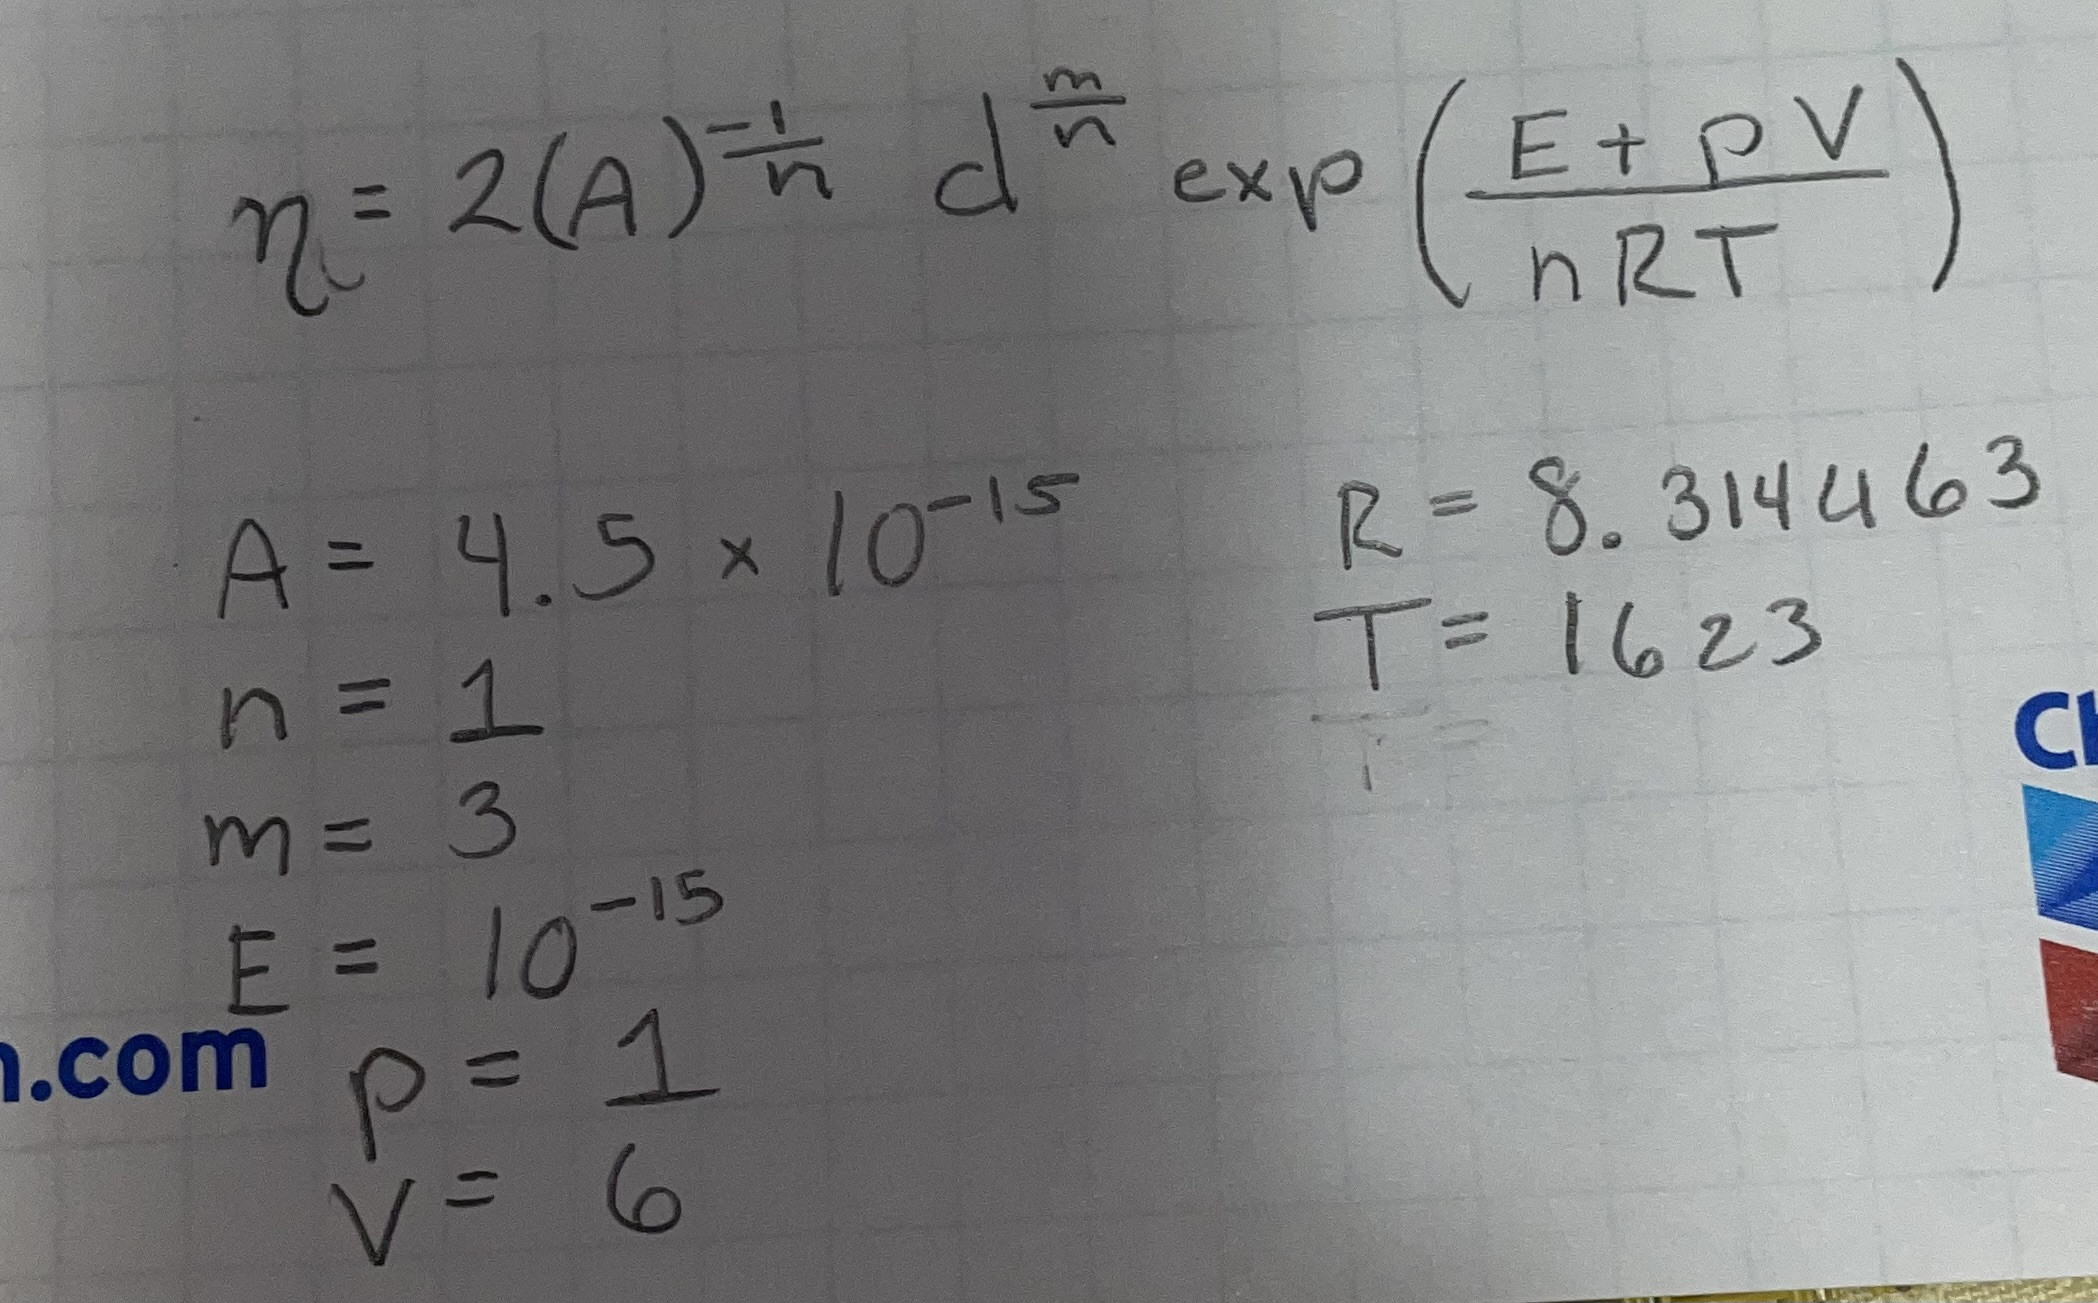 η = 2(A)^(-1/n) d^(m/n) exp((E + pV)/(nRT))
A = 4.5 × 10^-15
n = 1
m = 3
E = 10^-15
p = 1
V = 6
R = 8.314463
T = 1623
T =
.com